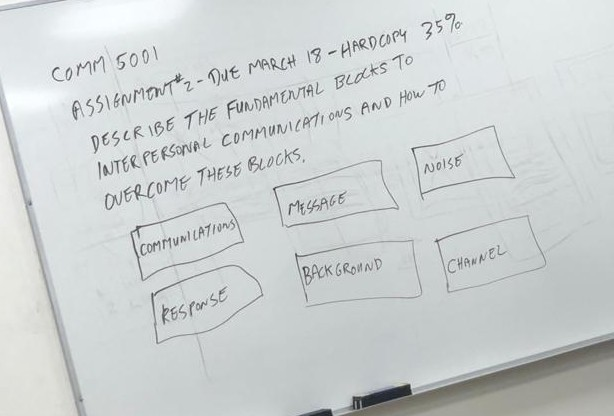 COMM 5001
ASSIGNMENT #2 - DUE MARCH 18 - HARDCOPY 35%
DESCRIBE THE FUNDAMENTAL BLOCKS TO
INTERPERSONAL COMMUNICATIONS AND HOW TO
OVERCOME THESE BLOCKS.
COMMUNICATIONS
MESSAGE
NOISE
RESPONSE
BACKGROUND
CHANNEL